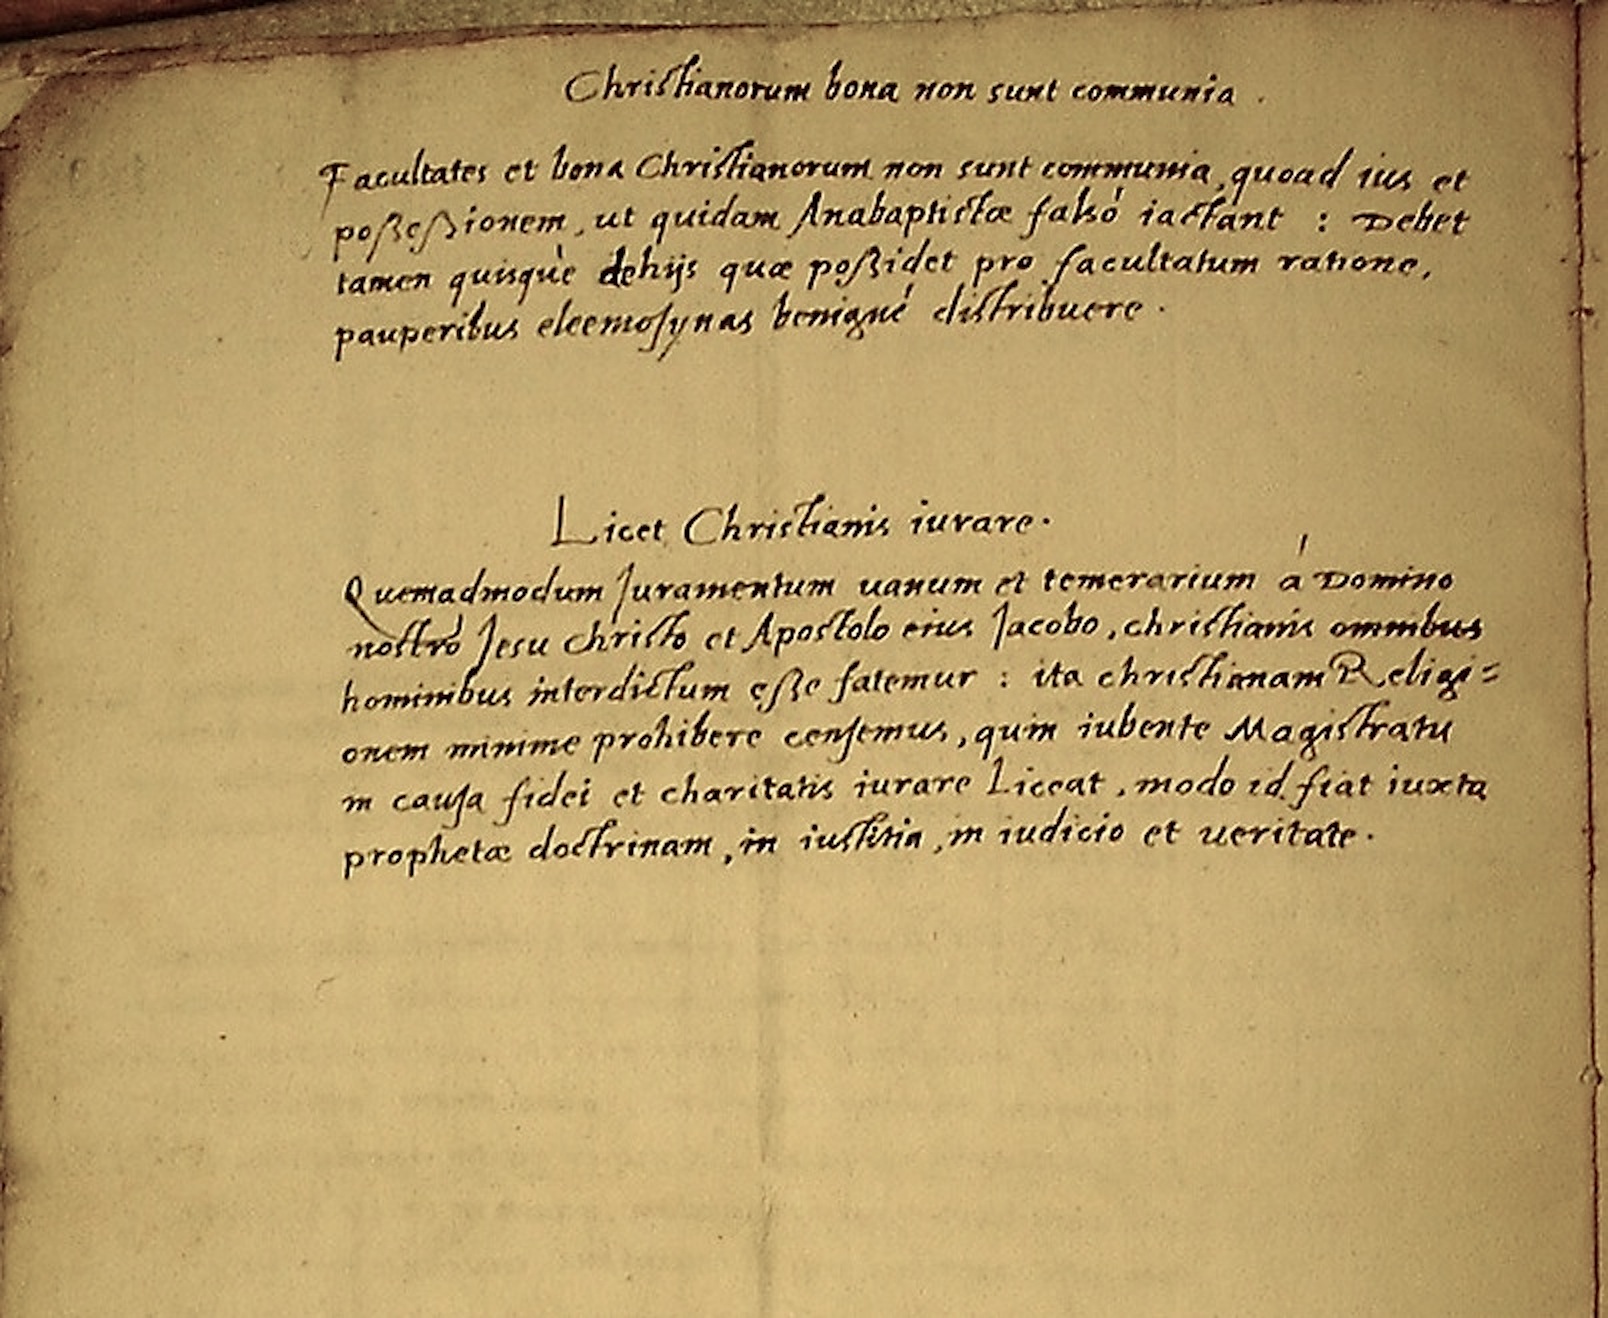 Christianorum bona non sunt communia .
Facultates et bona Christianorum non sunt communia, quoad ius et
poßeßionem, ut quidam Anabaptistæ falsó iactant : Debet
tamen quisquè dehijs quæ poßidet pro facultatum ratione,
pauperibus eleemosynas benigné distribuere .
Licet Christianis iurare .
Quemadmodum Juramentum uanum et temerarium á Domino
nostro Jesu christo et Apostolo eius Jacobo, christianis omnibus
hominibus interdictum eße fatemur : ita christianam Religi=
onem minime prohibere censemus, quin iubente Magistratu
in causa fidei et charitatis iurare Liceat, modo id fiat iuxta
prophetæ doctrinam, in iustitia, in iudicio et ueritate .